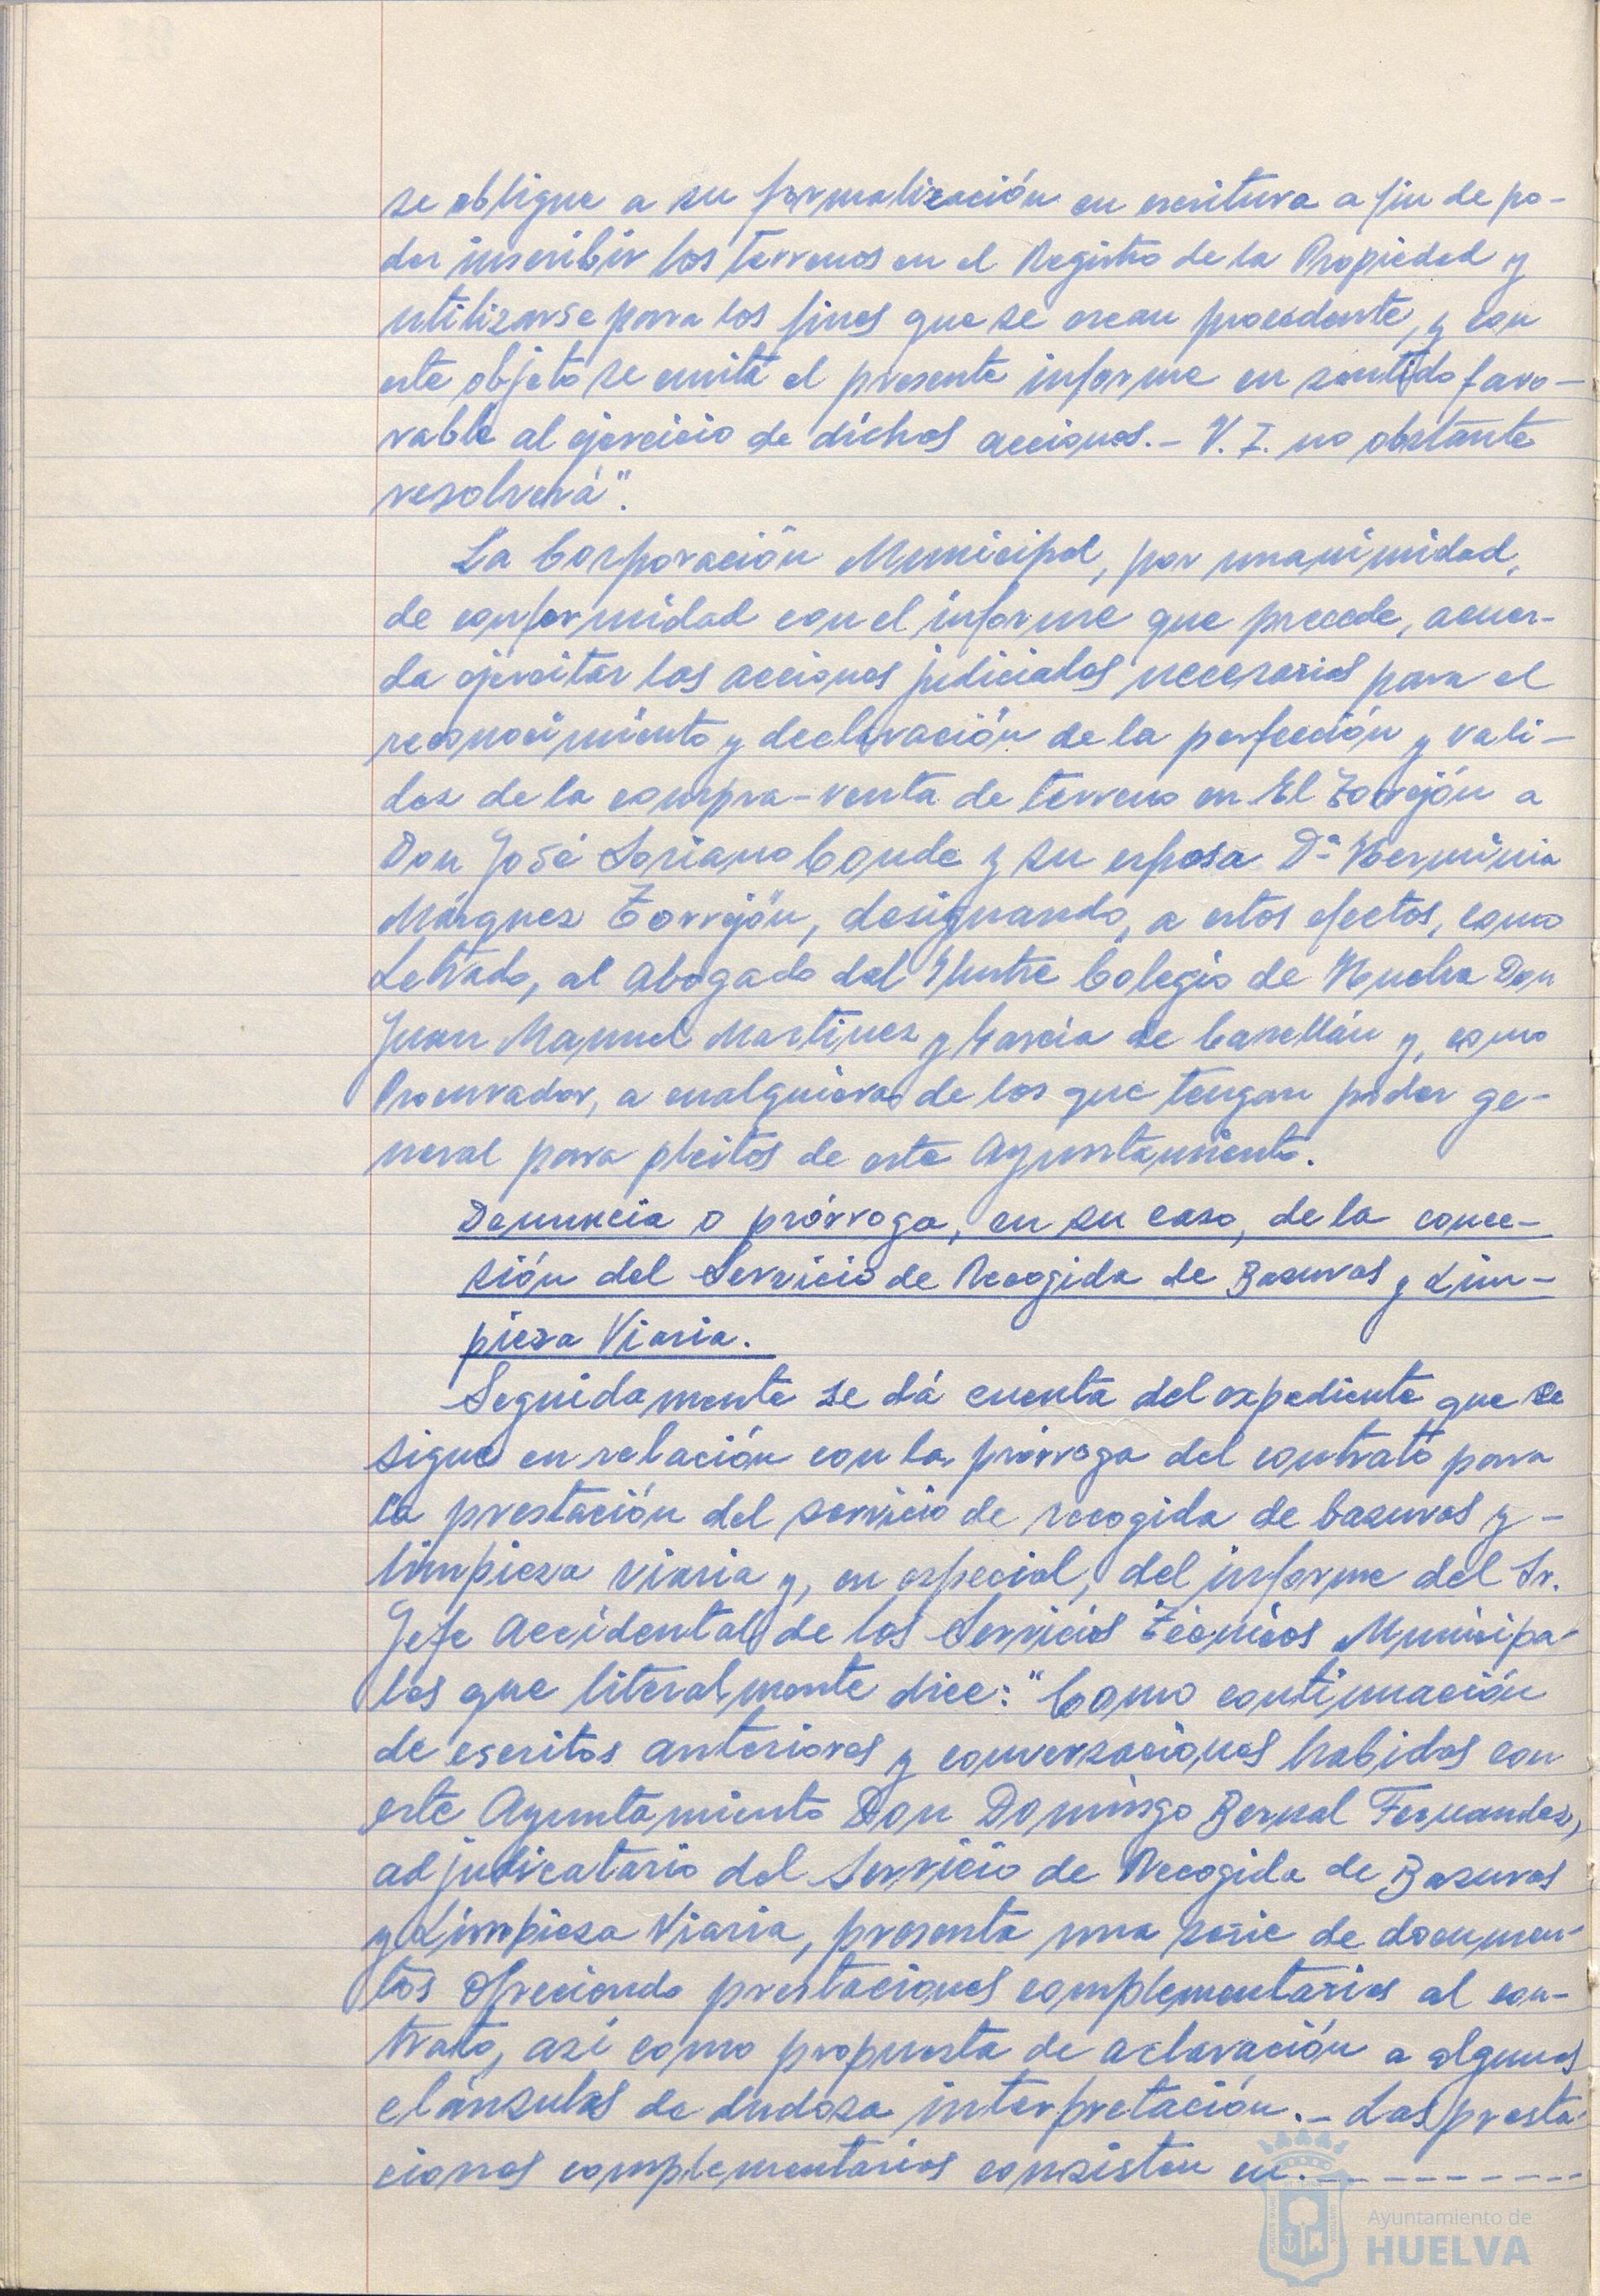 se obligue a su formalización en escritura a fin de po-
der inscribir los terrenos en el Registro de la Propiedad y
utilizarse para los fines que se crean procedente, y con
este objeto se emite el presente informe en sentido favo-
rable al ejercicio de dichas acciones.- V. I. no obstante
resolverá".
La Corporación Municipal, por unanimidad,
de conformidad con el informe que precede, acuer-
da ejercitar las acciones judiciales necesarias para el
reconocimiento y declaración de la perfección y vali-
dez de la compra-venta de terreno en El Torrejón a
Don José Soriano Conde y su esposa Dª Herminia
Márquez Torrejón, designando, a estos efectos, como
Letrado, al Abogado del Ilustre Colegio de Huelva Don
Juan Manuel Martinez y García de Casellán y, como
Procurador, a cualquiera de los que tengan poder ge-
neral para pleitos de este Ayuntamiento.
Denuncia o prórroga, en su caso, de la conce-
sión del Servicio de Recogida de Basuras y Lim-
pieza Viaria.
Seguidamente se dá cuenta del expediente que se
sigue en relación con la prórroga del contrato para
la prestación del servicio de recogida de basuras y -
limpieza viaria y, en especial, del informe del Sr.
Jefe Accidental de los Servicios Técnicos Municipa-
les que literalmente dice: "Como continuación
de escritos anteriores y conversaciones habidas con
este Ayuntamiento Don Domingo Bernal Fernandez,
adjudicatario del Servicio de Recogida de Basuras
y Limpieza Viaria, presenta una serie de documen-
tos ofreciendo prestaciones complementarias al con-
trato, así como propuesta de aclaración a algunas
cláusulas de dudosa interpretación.- Las presta-
ciones complementarias consisten en.----------
Ayuntamiento de
HUELVA